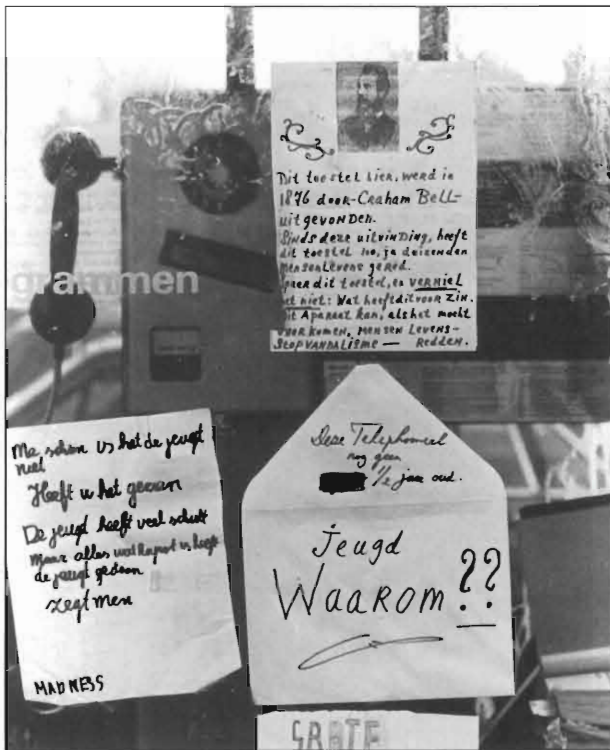 Dit toestel hier, werd in
1876 door-Craham BELL-
uitgevonDen.
Sinds deze uitvinDing, heeft
dit toestel ho, ja duizenden
mensenlevens gered.
dit toestel, en VERNIEL
het niet: Wat heeft dit voor Zin.
Dit Aparaat kan, als het mocht
voorkomen, mensen Levens-
StopVANDALISME — Redden.
grammen
Ma schien is het de jeugt
niet
Heeft u het gezien
De jeugd heeft veel schult
Maar alles wat kapot is heeft
de jeugt gedaan
zegt men
MADNESS
Deze Telephooncel
nog geen
1/2 jaar oud.
jeugd
WAAROM ??
GRATE